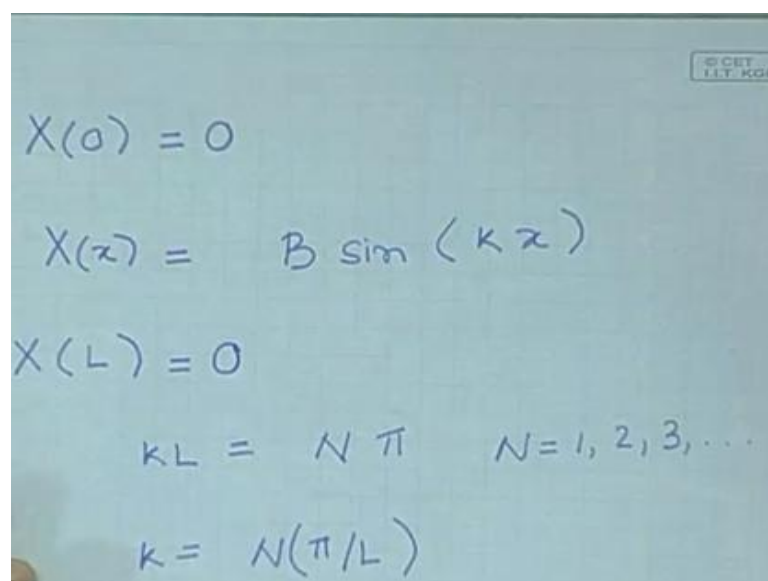 © CET
I.I.T. KGP
X(0) = 0
X(x) = B sin (kx)
X(L) = 0
kL = Nπ N = 1, 2, 3, ...
k = N(π/L)